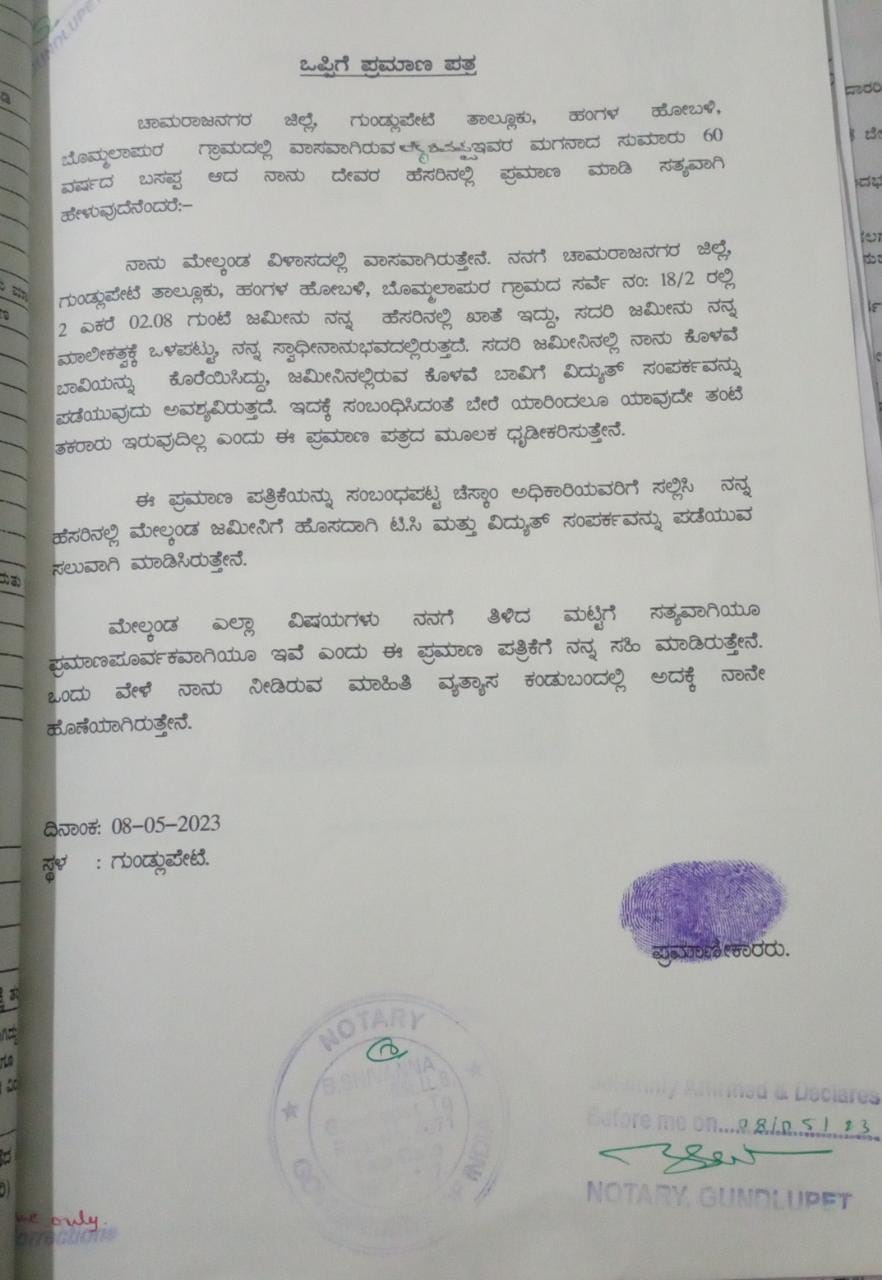 GUNDLUPET
ಒಪ್ಪಿಗೆ ಪ್ರಮಾಣ ಪತ್ರ
ಚಾಮರಾಜನಗರ ಜಿಲ್ಲೆ, ಗುಂಡ್ಲುಪೇಟೆ ತಾಲ್ಲೂಕು, ಹಂಗಳ ಹೋಬಳಿ,
ಬೊಮ್ಮಲಾಪುರ ಗ್ರಾಮದಲ್ಲಿ ವಾಸವಾಗಿರುವ ಇವರ ಮಗನಾದ ಸುಮಾರು 60
ವರ್ಷದ ಬಸಪ್ಪ ಆದ ನಾನು ದೇವರ ಹೆಸರಿನಲ್ಲಿ ಪ್ರಮಾಣ ಮಾಡಿ ಸತ್ಯವಾಗಿ
ಹೇಳುವುದೆನೆಂದರೆ:–
ನಾನು ಮೇಲ್ಕಂಡ ವಿಳಾಸದಲ್ಲಿ ವಾಸವಾಗಿರುತ್ತೇನೆ. ನನಗೆ ಚಾಮರಾಜನಗರ ಜಿಲ್ಲೆ,
ಗುಂಡ್ಲುಪೇಟೆ ತಾಲ್ಲೂಕು, ಹಂಗಳ ಹೋಬಳಿ, ಬೊಮ್ಮಲಾಪುರ ಗ್ರಾಮದ ಸರ್ವೆ ನಂ: 18/2 ರಲ್ಲಿ
2 ಎಕರೆ 02.08 ಗುಂಟೆ ಜಮೀನು ನನ್ನ ಹೆಸರಿನಲ್ಲಿ ಖಾತೆ ಇದ್ದು, ಸದರಿ ಜಮೀನು ನನ್ನ
ಮಾಲೀಕತ್ವಕ್ಕೆ ಒಳಪಟ್ಟು, ನನ್ನ ಸ್ವಾಧೀನಾನುಭವದಲ್ಲಿರುತ್ತದೆ. ಸದರಿ ಜಮೀನಿನಲ್ಲಿ ನಾನು ಕೊಳವೆ
ಬಾವಿಯನ್ನು ಕೊರೆಯಿಸಿದ್ದು, ಜಮೀನಿನಲ್ಲಿರುವ ಕೊಳವೆ ಬಾವಿಗೆ ವಿದ್ಯುತ್ ಸಂಪರ್ಕವನ್ನು
ಪಡೆಯುವುದು ಅವಶ್ಯವಿರುತ್ತದೆ. ಇದಕ್ಕೆ ಸಂಬಂಧಿಸಿದಂತೆ ಬೇರೆ ಯಾರಿಂದಲೂ ಯಾವುದೇ ತಂಟೆ
ತಕರಾರು ಇರುವುದಿಲ್ಲ ಎಂದು ಈ ಪ್ರಮಾಣ ಪತ್ರದ ಮೂಲಕ ಧೃಡೀಕರಿಸುತ್ತೇನೆ.
ಈ ಪ್ರಮಾಣ ಪತ್ರಿಕೆಯನ್ನು ಸಂಬಂಧಪಟ್ಟ ಚೆಸ್ಕಾಂ ಅಧಿಕಾರಿಯವರಿಗೆ ಸಲ್ಲಿಸಿ ನನ್ನ
ಹೆಸರಿನಲ್ಲಿ ಮೇಲ್ಕಂಡ ಜಮೀನಿಗೆ ಹೊಸದಾಗಿ ಟಿ.ಸಿ ಮತ್ತು ವಿದ್ಯುತ್ ಸಂಪರ್ಕವನ್ನು ಪಡೆಯುವ
ಸಲುವಾಗಿ ಮಾಡಿಸಿರುತ್ತೇನೆ.
ಮೇಲ್ಕಂಡ ಎಲ್ಲಾ ವಿಷಯಗಳು ನನಗೆ ತಿಳಿದ ಮಟ್ಟಿಗೆ ಸತ್ಯವಾಗಿಯೂ
ಪ್ರಮಾಣಪೂರ್ವಕವಾಗಿಯೂ ಇವೆ ಎಂದು ಈ ಪ್ರಮಾಣ ಪತ್ರಿಕೆಗೆ ನನ್ನ ಸಹಿ ಮಾಡಿರುತ್ತೇನೆ.
ಒಂದು ವೇಳೆ ನಾನು ನೀಡಿರುವ ಮಾಹಿತಿ ವ್ಯತ್ಯಾಸ ಕಂಡುಬಂದಲ್ಲಿ ಅದಕ್ಕೆ ನಾನೇ
ಹೊಣೆಯಾಗಿರುತ್ತೇನೆ.
ದಿನಾಂಕ: 08–05–2023
ಸ್ಥಳ : ಗುಂಡ್ಲುಪೇಟೆ.
ಪ್ರಮಾಣೀಕಾರರು.
NOTARY
B.SHIVANNA
INDIA
Solemnly Affirmed & Declares
Before me on....08/05/23
NOTARY, GUNDLUPET
only.